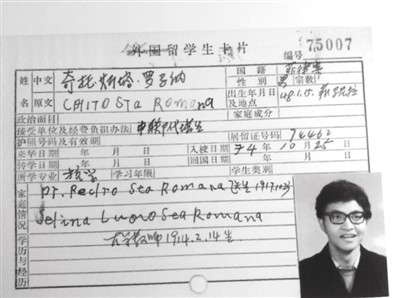 外国留学生卡片
编号 75007
姓 中文 奇托·斯塔·罗
国籍 菲律宾
性别 男 宗教
名 原文 CHITO Sta Romana
出生年月日及地点 48.1.5.
政治面目
家庭成分
接受单位及经费负担办法 中联部代培生
居留证号码 74462
护照号码及有效期
来华日期 年 月 日 入校日期 74年10月25日
转学日期 年 月 日 回国日期 年 月 日
所学专业 学习年限 学生类别
家庭情况 Dr. Pedro Sta Romana
Selina Sta Romana
大学教师 1914.2.14生
学历与经历